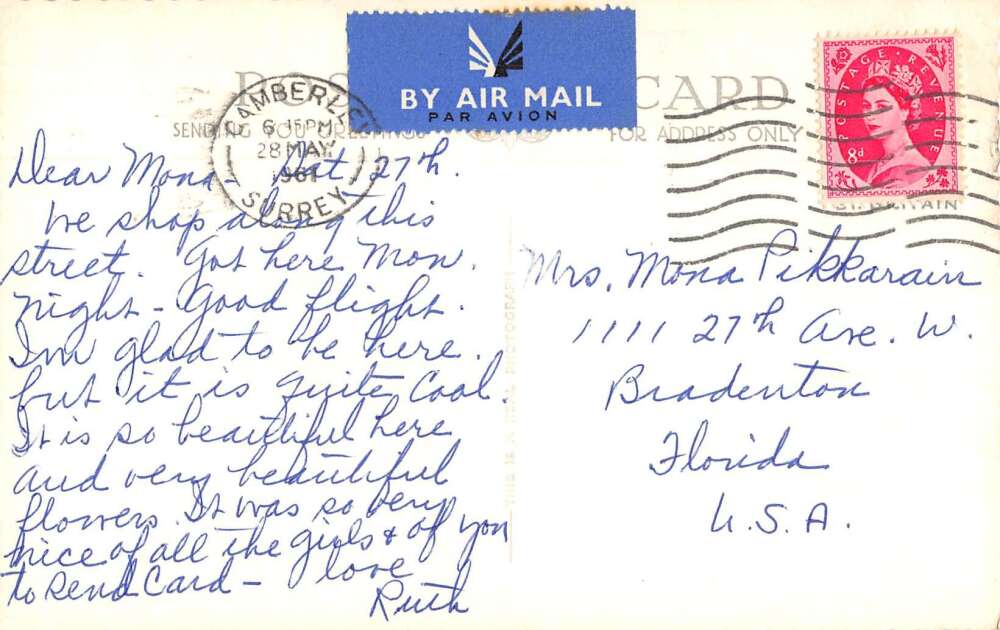 POST CARD
BY AIR MAIL
PAR AVION
SENDING YOU GREETINGS
FOR ADDRESS ONLY
CAMBERLEY
6 15PM
28 MAY
1961
SURREY
POSTAGE REVENUE
8d
GT. BRITAIN
Dear Mona - Sat 27th.
We shop along this
street. Got here Mon.
night - Good flight.
I'm glad to be here.
but it is quite cool.
It is so beautiful here
and very beautiful
flowers. It was so very
nice of all the girls & of you
to send card - love
Ruth
THIS IS A REAL PHOTOGRAPH
Mrs. Mona Pikkarain
1111 27th Ave. W.
Bradenton
Florida
U.S.A.